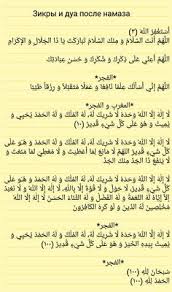 Зикры и дуа после намаза
أَسْتَغْفِرُ اللَّهَ (٣)
اللَّهُمَّ أَنْتَ السَّلَامُ وَ مِنْكَ السَّلَامُ تَبَارَكْتَ يَا ذَا الْجَلَالِ وَ الْإِكْرَامِ
اللَّهُمَّ أَعِنِّي عَلَى ذِكْرِكَ وَ شُكْرِكَ وَ حُسْنِ عِبَادَتِكَ
*الفجر*
اللَّهُمَّ إِنِّي أَسْأَلُكَ عِلْمًا نَافِعًا وَ عَمَلًا مُتَقَبَّلًا وَ رِزْقًا طَيِّبًا
*المغرب و الفجر*
لَا إِلَهَ إِلَّا اللَّهُ وَحْدَهُ لَا شَرِيكَ لَهُ لَهُ الْمُلْكُ وَ لَهُ الْحَمْدُ يُحْيِي وَ
يُمِيتُ وَ هُوَ عَلَى كُلِّ شَيْءٍ قَدِيرٌ (١٠)
لَا إِلَهَ إِلَّا اللَّهُ وَحْدَهُ لَا شَرِيكَ لَهُ لَهُ الْمُلْكُ وَ لَهُ الْحَمْدُ وَ هُوَ عَلَى
كُلِّ شَيْءٍ قَدِيرٌ اللَّهُمَّ لَا مَانِعَ لِمَا أَعْطَيْتَ وَ لَا مُعْطِيَ لِمَا مَنَعْتَ وَ
لَا يَنْفَعُ ذَا الْجَدِّ مِنْكَ الْجَدُّ
لَا إِلَهَ إِلَّا اللَّهُ وَحْدَهُ لَا شَرِيكَ لَهُ لَهُ الْمُلْكُ وَ لَهُ الْحَمْدُ وَ هُوَ عَلَى
كُلِّ شَيْءٍ قَدِيرٌ لَا حَوْلَ وَ لَا قُوَّةَ إِلَّا بِاللَّهِ لَا إِلَهَ إِلَّا اللَّهُ وَ لَا نَعْبُدُ
إِلَّا إِيَّاهُ لَهُ النِّعْمَةُ وَ لَهُ الْفَضْلُ وَ لَهُ الثَّنَاءُ الْحَسَنُ لَا إِلَهَ إِلَّا اللَّهُ
مُخْلِصِينَ لَهُ الدِّينَ وَ لَوْ كَرِهَ الْكَافِرُونَ
*الفجر*
لَا إِلَهَ إِلَّا اللَّهُ وَحْدَهُ لَا شَرِيكَ لَهُ لَهُ الْمُلْكُ وَ لَهُ الْحَمْدُ يُحْيِي وَ
يُمِيتُ بِيَدِهِ الْخَيْرُ وَ هُوَ عَلَى كُلِّ شَيْءٍ قَدِيرٌ (١٠٠)
*الفجر*
سُبْحَانَ لِلَّهِ (١٠٠)
الْحَمْدُ لِلَّهِ (١٠٠)